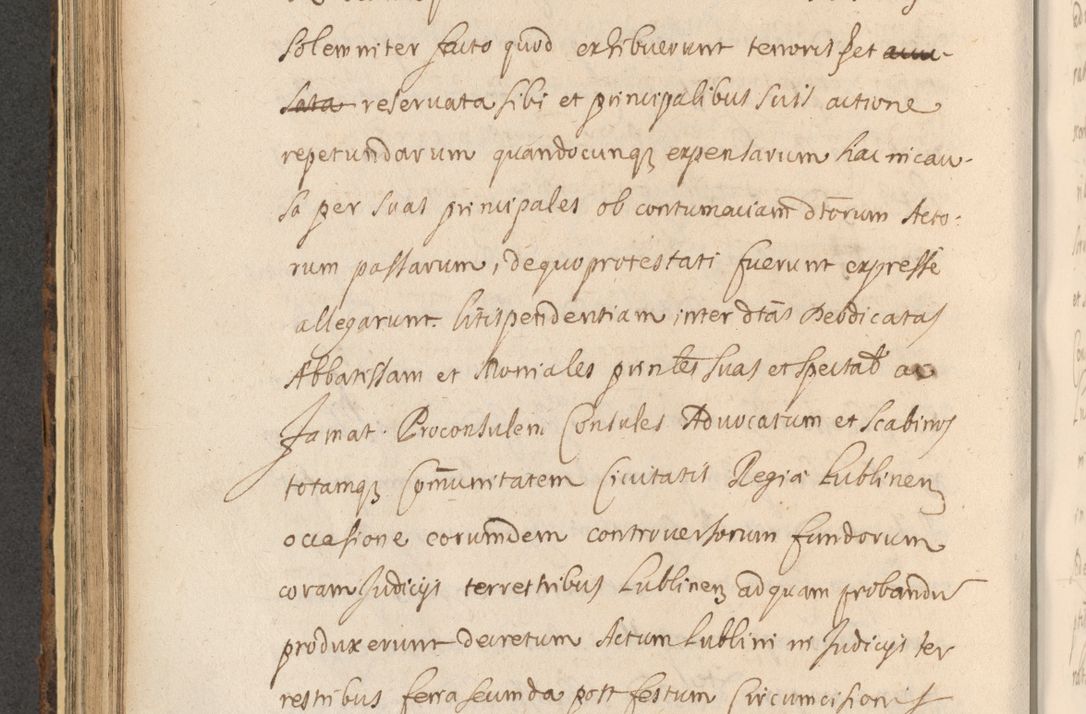 Solemniter facto quod exhibuerunt tenoris sset
reservata sibi et principalibus suis actione
repetundarum quandocunqȝ expensarum hac in cau-
sa per suas principales ob contumaciam dtorum Acto-
rum passarum, de quo protestati fuerunt expresse
allegarunt litispendentiam inter dtas Deodicatas
Abbatissam et Moniales prinles suas et spectab ac
Famat. Proconsulem Consules Advocatum et Scabinos
totamqȝ Comunitatem Civitatis Regiae Lublinenȝ
occasione eorumdem controversorum fundorum
coram Judicijs terrestribus Lublinenȝ ad quam probandu
produxerunt decretum Actum Lublini in Judicijs ter
restribus feria secunda post festum Circumcisionis